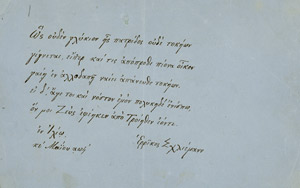 Ὣς οὐδὲν γλύκιον ἧς πατρίδος οὐδὲ τοκήων
γίγνεται, εἴπερ καί τις ἀπόπροθι πίονα οἶκον
γαίῃ ἐν ἀλλοδαπῇ ναίει ἀπάνευθε τοκήων.
εἰ δ' ἄγε τοι καὶ νόστον ἐμὸν πολυκηδέ' ἐνίσπω,
ὅν μοι Ζεὺς ἐφέηκεν ἀπὸ Τροίηθεν ἰόντι.
ἐν
Μαΐου
Σχλιέμανν